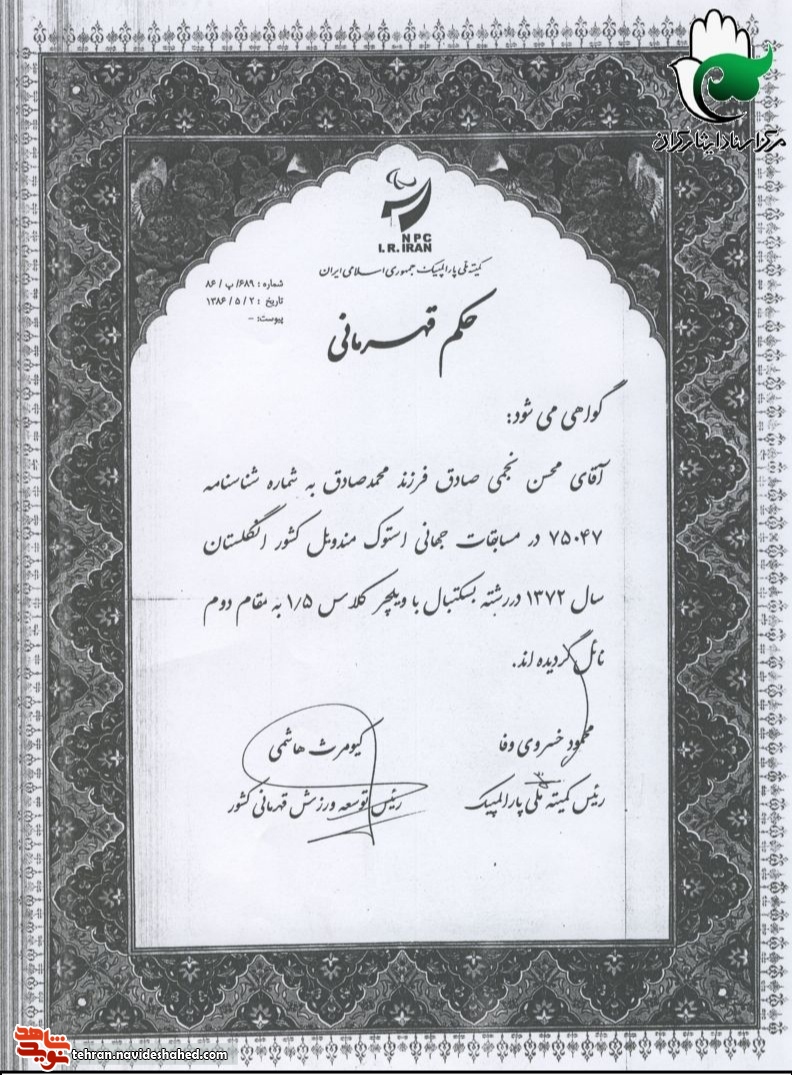 مرکز اسناد ایثارگران
NPC
I.R.IRAN
کمیته ملی پارالمپیک جمهوری اسلامی ایران
شماره : ۶۸۹/ پ / ۸۶
تاریخ : ۲ / ۵ / ۱۳۸۶
پیوست: -
حکم قهرمانی
گواهی می شود:
آقای محسن نجمی صادق فرزند محمدصادق به شماره شناسنامه
۷۵۰۴۷ در مسابقات جهانی استوک مندویل کشور انگلستان
سال ۱۳۷۲ در رشته بسکتبال با ویلچر کلاس ۱/۵ به مقام دوم
نائل گردیده اند.
محمود خسروی وفا
رئیس کمیته ملی پارالمپیک
کیومرث هاشمی
رئیس توسعه ورزش قهرمانی کشور
نوید شاهد
tehran.navideshahed.com